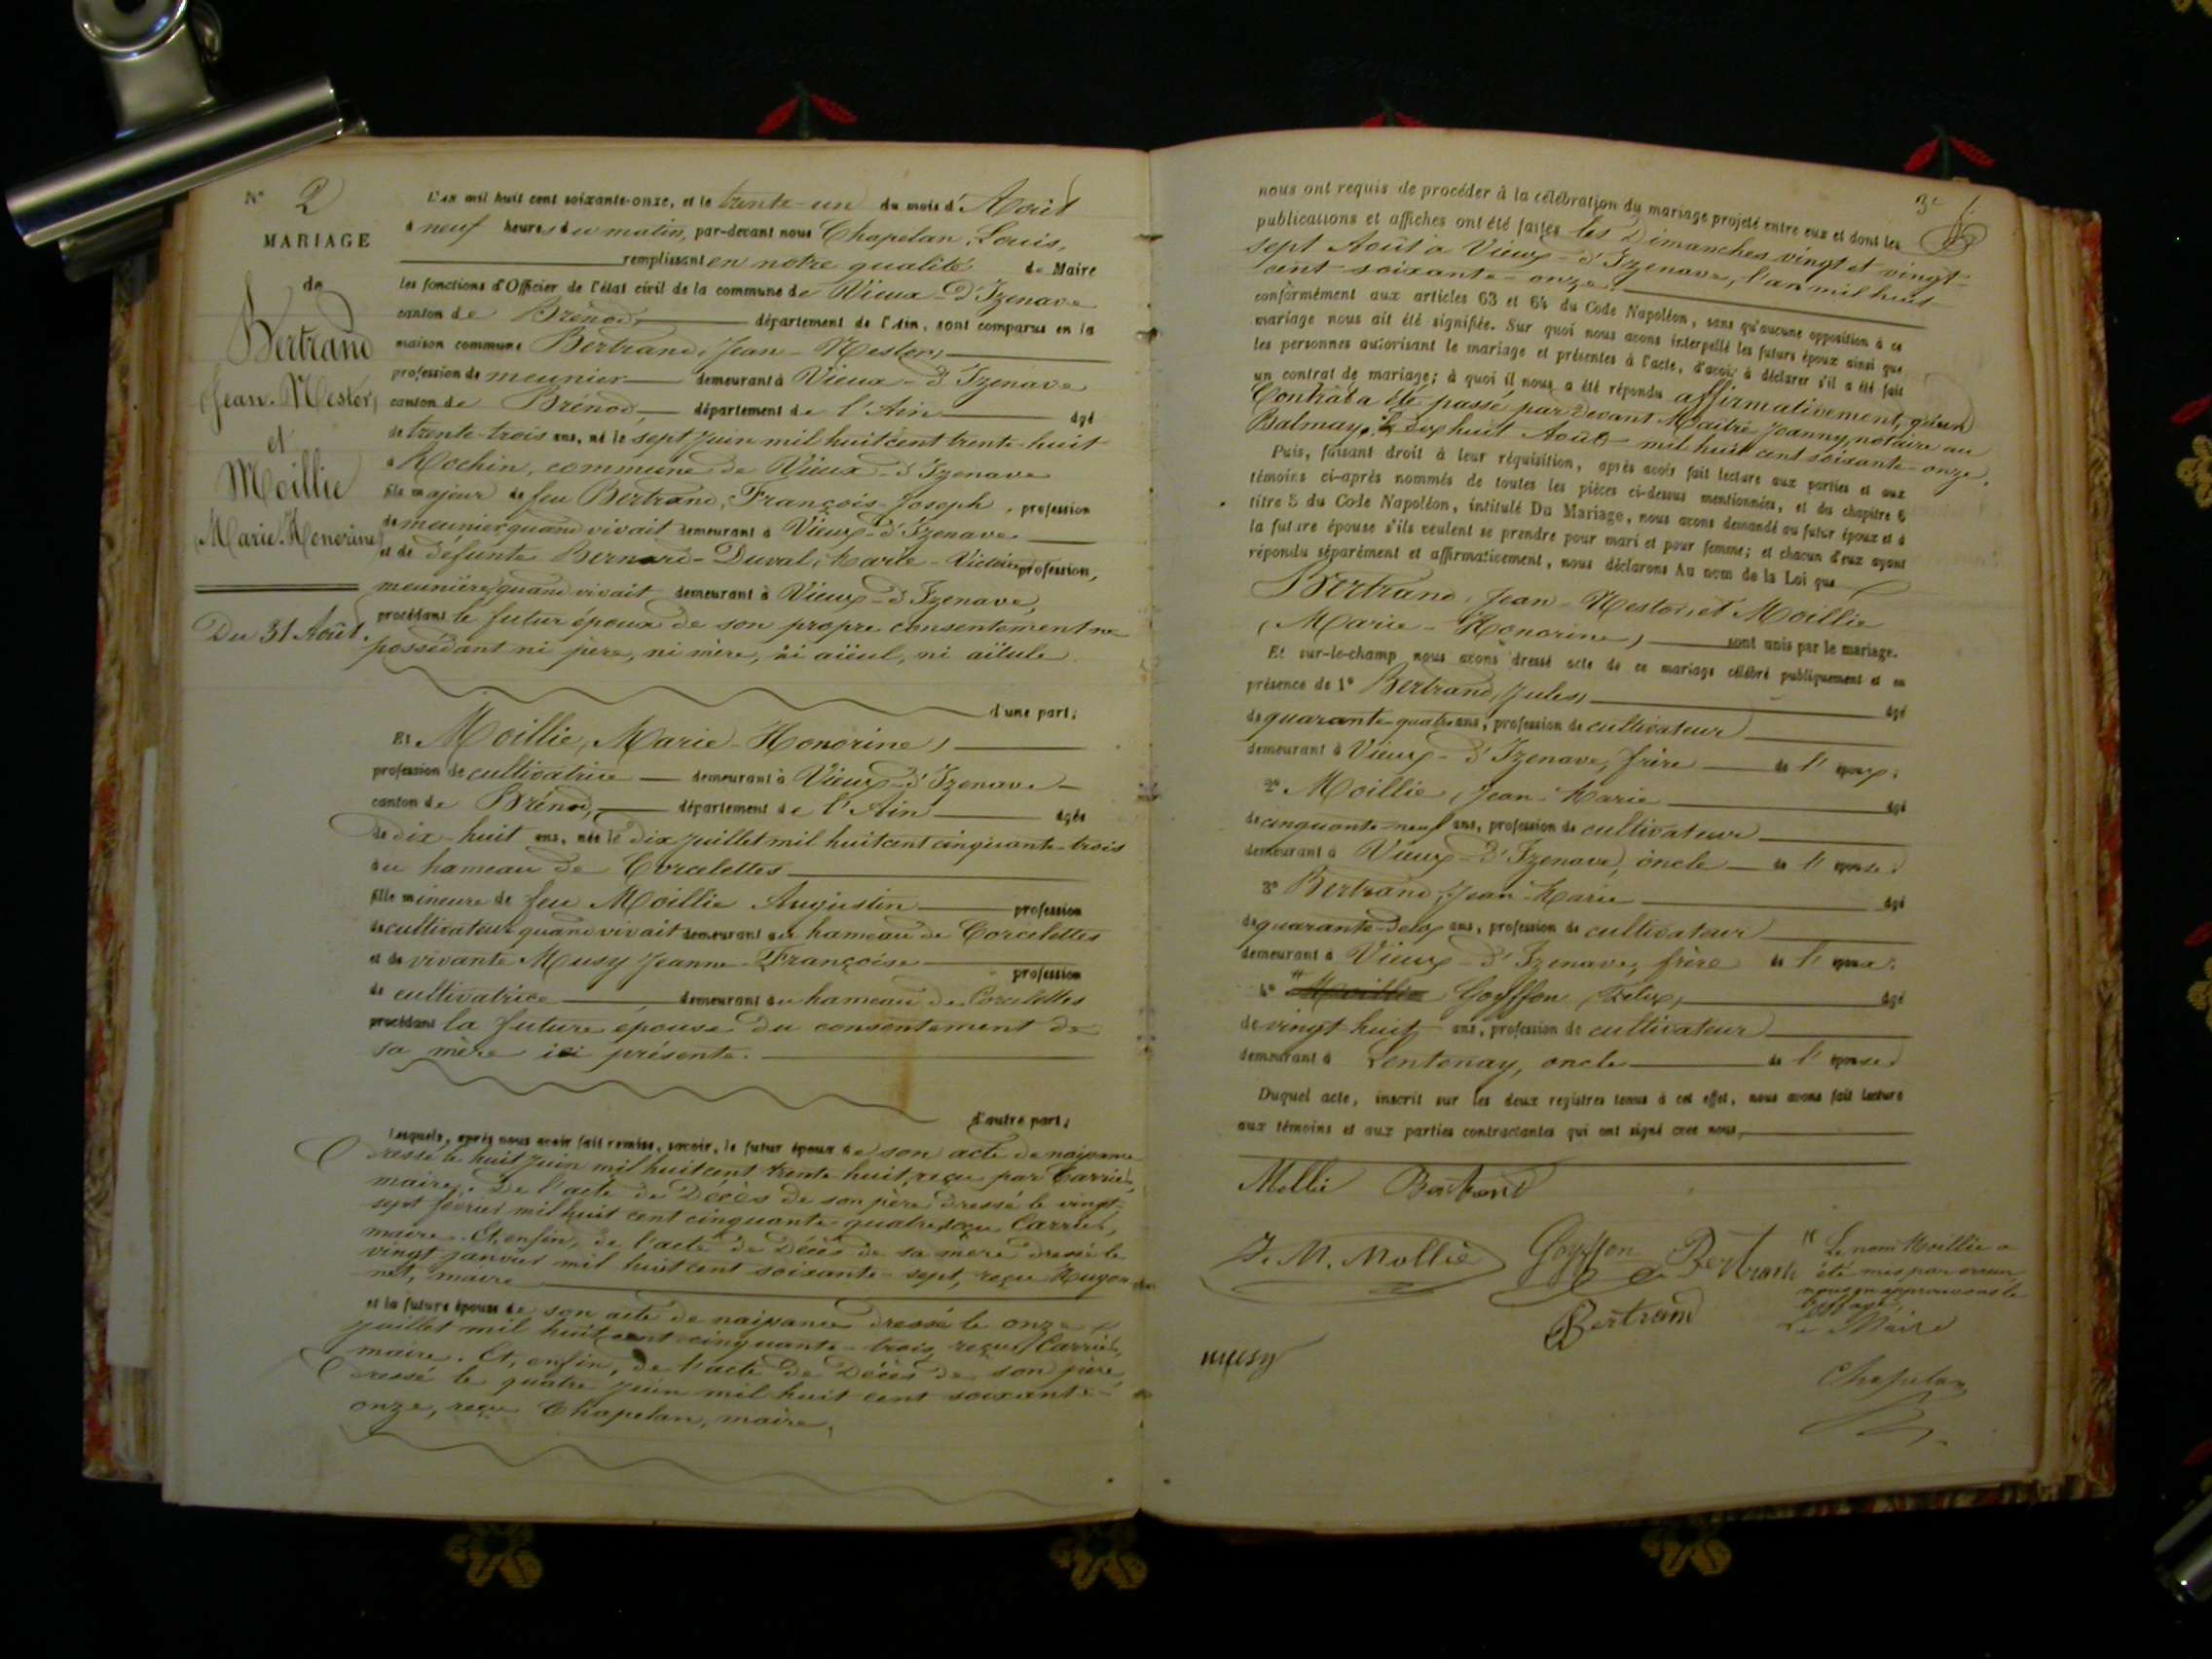 N° 2
MARIAGE
de
Bertrand
Jean-Nestor,
et
Moillie
Marie-Honorine
Du 31 Août.
L'an mil huit cent soixante-onze, et le trente-un du mois d'Août
à neuf heures du matin, par-devant nous Chapelan, Louis,
remplissant en notre qualité de Maire
les fonctions d'Officier de l'état civil de la commune de Vieux-d'Izenave
canton de Brénod, département de l'Ain, sont comparus en la
maison commune Bertrand, Jean-Nestor,
profession de meunier demeurant à Vieux-d'Izenave
canton de Brénod, département de l'Ain âgé
de trente-trois ans, né le sept Juin mil huit cent trente-huit
à Rochin, commune de Vieux-d'Izenave
fils majeur de feu Bertrand, François-Joseph, profession
de meunier quand vivait demeurant à Vieux-d'Izenave
et de défunte Bernard-Duval, Marie-Victoire profession,
meunière quand vivait demeurant à Vieux-d'Izenave,
procédant le futur époux de son propre consentement ne
possédant ni père, ni mère, ni aïeul, ni aïeule
d'une part;
Et Moillie, Marie-Honorine,
profession de cultivatrice demeurant à Vieux-d'Izenave
canton de Brénod, département de l'Ain âgée
de dix-huit ans, née le dix Juillet mil huit cent cinquante-trois
au hameau de Corcelettes
fille mineure de feu Moillie Augustin profession
de cultivateur quand vivait demeurant au hameau de Corcelettes
et de vivante Musy Jeanne-Françoise profession
de cultivatrice, demeurant au hameau de Corcelettes
procédant la future epouse du consentement de
sa mère ici présente.
d'autre part;
Lesquels, après nous avoir fait remise, savoir, le futur époux de son acte de naissance
dressé le huit Juin mil huit cent trente huit, reçu par Carrier,
maire. De l'acte de Décès de son père dressé le vingt-
sept février mil huit cent cinquante quatre, reçu Carrier,
maire. Et, enfin, de l'acte de Décès de sa mère dressé le
vingt janvier mil huit cent soixante-sept, reçu Hugon-
net, maire
et la future épouse de son acte de naissance dressé le onze
juillet mil huit cent cinquante-trois, reçu Carrier,
maire. Et, enfin, de l'acte de Décès de son père,
dressé le quatre Juin mil huit cent soixante-
onze, reçu Chapelan, maire,
3e f.
nous ont requis de procéder à la célébration du mariage projeté entre eux et dont les
publications et affiches ont été faites les Dimanches vingt et vingt-
sept Août à Vieux-d'Izenave, l'an mil huit
cent-soixante-onze.
conformément aux articles 63 et 64 du Code Napoléon, sans qu'aucune opposition à ce
mariage nous ait été signifiée. Sur quoi nous avons interpellé les futurs époux ainsi que
les personnes autorisant le mariage et présentes à l'acte, d'avoir à déclarer s'il a été fait
un contrat de mariage; à quoi il nous a été répondu affirmativement, qu'un
Contrat a été passé par devant Maître Jeanny, notaire au
Balmay, le dix huit Août mil huit cent soixante-onze.
Puis, faisant droit à leur réquisition, après avoir fait lecture aux parties et aux
témoins ci-après nommés de toutes les pièces ci-dessus mentionnées, et du chapitre 6
titre 5 du Code Napoléon, intitulé Du Mariage, nous avons demandé au futur époux et à
la future épouse s'ils veulent se prendre pour mari et pour femme; et chacun d'eux ayant
répondu séparément et affirmativement, nous déclarons Au nom de la Loi que
Bertrand, Jean-Nestor, et Moillie
(Marie-Honorine) sont unis par le mariage.
Et sur-le-champ nous avons dressé acte de ce mariage célébré publiquement et en
présence de 1° Bertrand, Jules, âgé
de quarante-quatre ans, profession de cultivateur
demeurant à Vieux-d'Izenave, frère de l'époux;
2° Moillie, Jean-Marie âgé
de cinquante-neuf ans, profession de cultivateur
demeurant à Vieux-d'Izenave, oncle de l'épouse;
3° Bertrand, Jean-Marie âgé
de quarante-deux ans, profession de cultivateur
demeurant à Vieux-d'Izenave, frère de l'époux;
4° Moillie Goyffon Félix, âgé
de vingt huit ans, profession de cultivateur
demeurant à Lentenay, oncle de l'épouse.
Duquel acte, inscrit sur les deux registres tenus à cet effet, nous avons fait lecture
aux témoins et aux parties contractantes qui ont signé avec nous,
Mollié Bertrand
J. M. Mollié Goyffon Bertrand
Bertrand
musy
Le nom Moillie a
été mis par erreur,
nous en approuvons le
Le Maire
Chapelan